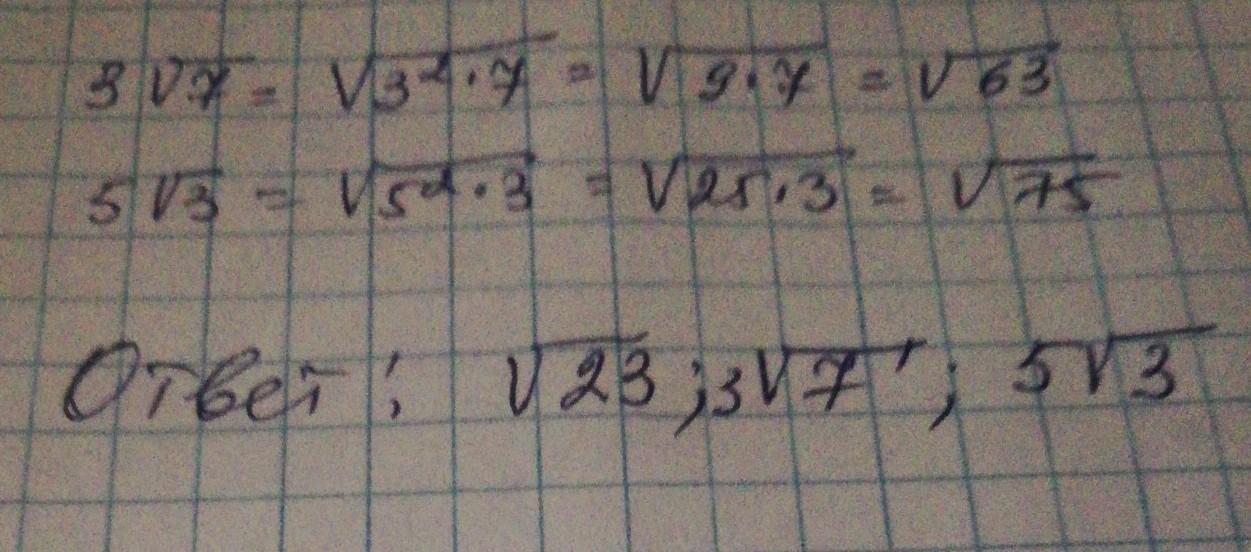 3√7 = √3²·7 = √9·7 = √63
5√3 = √5²·3 = √25·3 = √75
Ответ: √23; 3√7; 5√3